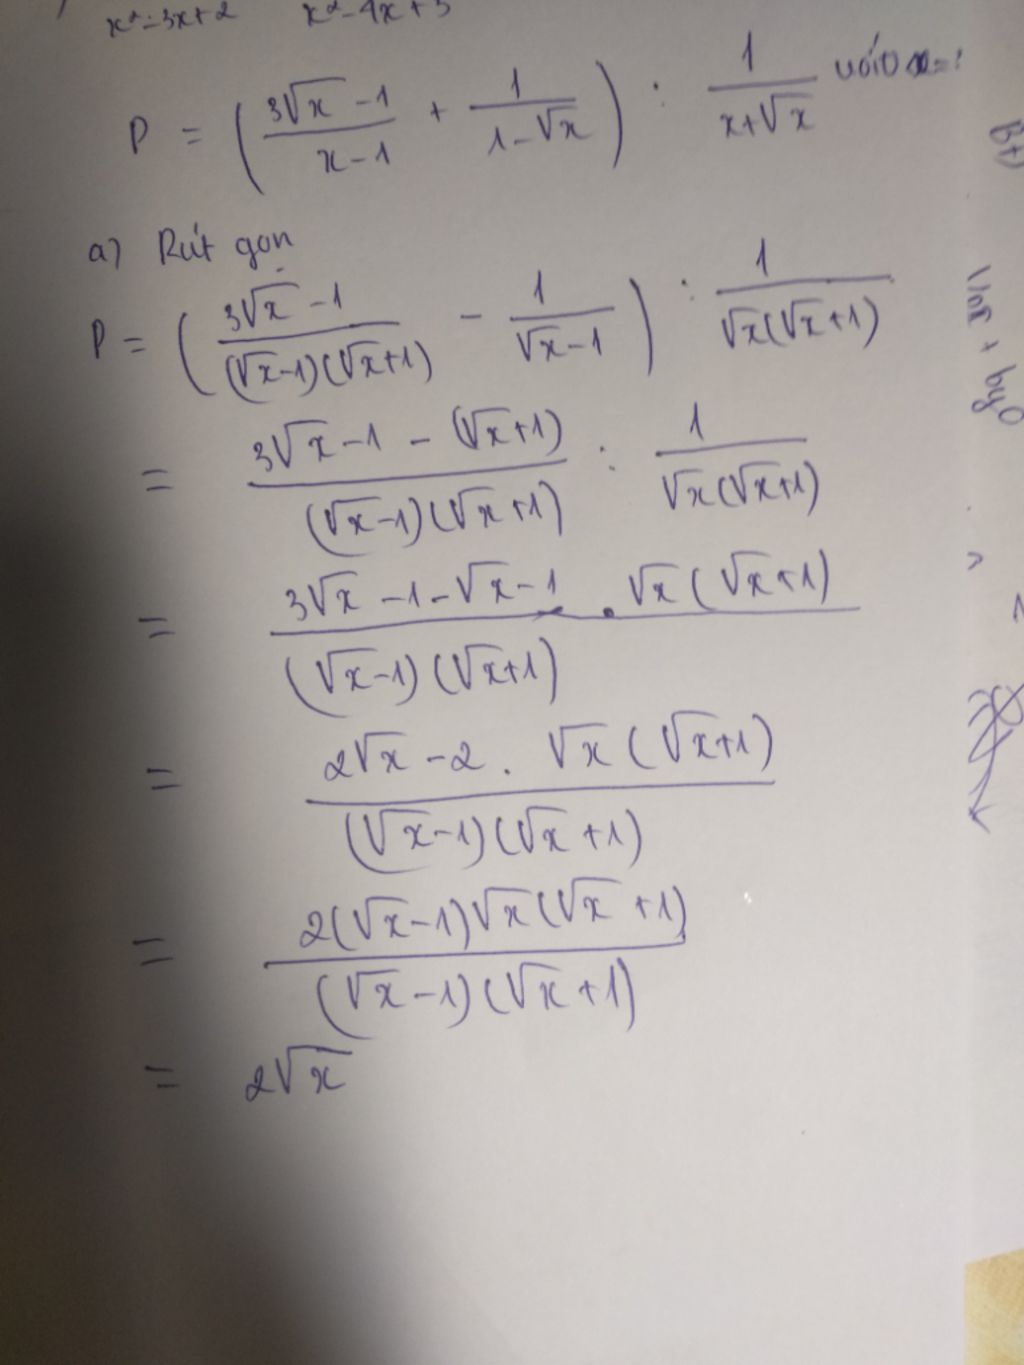 x²-3x+2 x²-4x+3
P = ( (3√x - 1)/(x-1) + 1/(1-√x) ) : 1/(x+√x) với
a) Rút gọn
P = ( (3√x - 1)/((√x-1)(√x+1)) - 1/(√x-1) ) : 1/(√x(√x+1))
= (3√x - 1 - (√x+1))/((√x-1)(√x+1)) : 1/(√x(√x+1))
= (3√x - 1 - √x - 1 . √x(√x+1))/((√x-1)(√x+1))
= (2√x - 2 . √x(√x+1))/((√x-1)(√x+1))
= (2(√x-1)√x(√x+1))/((√x-1)(√x+1))
= 2√x